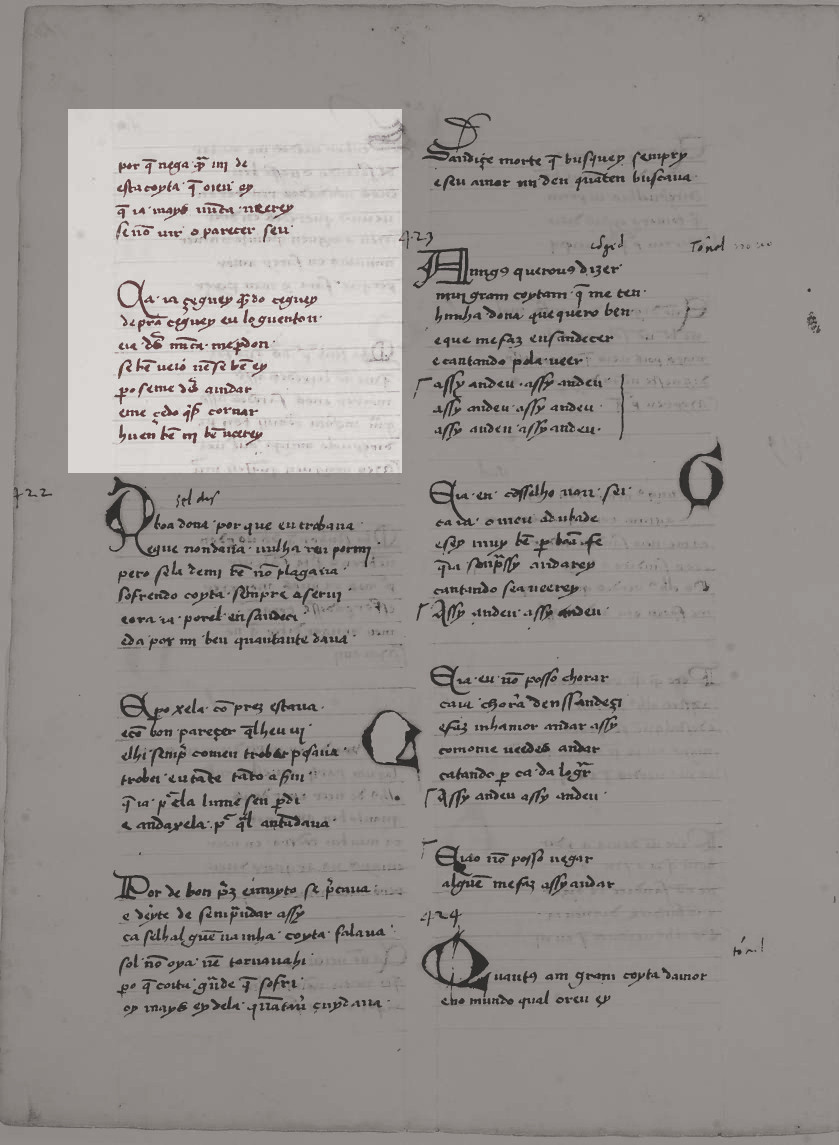 por q̄ nega q̄r mi de
esta coyta q̄ oieu ey
q̄ ia mays nūca ueerey
se nō uir o pareçer seu
Ca ia çeguey quādo çeguey
de prā çeguey eu log entō
eia ds nūca me pdon
se bē ueio nē se bē ey
po se me ds aiudar
e me çedo q̄s cornar
hu eu bē ui bē ueerey
422
boa dona por que eu trobaua
e que non daua nulha ren por mi
pero sela de mi bē nō plagaua
sofrendo coyta sēmpre a serui
e ora ia por el ensandeçi
e da por mi ben quantante daua
E po xela cō prez estaua
e cō bon pareçer q̄ lheu ui
e lhi semp̄ com eu trobar pesaua
trobei eu tāte tāto a fui
q̄ ia p ela lume sen pdi
e anda xela p q̄l antādaua
Por de bon p̄z e muyto se p̄çaua
e deyte de semp̄ndar assy
ca selhalguē na mha coyta falaua
sol nō oya nē tornaua hi
po q̄ coita grāde q̄ sofri
oy mays ey dela quātau cuydaua
Sandiçe morte q̄ busquey sempry
e seu amor mi deu quāt en buscaua
423
Amigꝯ querouꝯ dizer
mui gram coytam q̄ me ten
hunha dona que quero ben
e que me faz ensandecer
e catando pola ueer
assy andeu assy andeu
assy andeu assy andeu
assy andeu assy andeu
E ia eu cōsselho non sei
ca ia o meu adubade
e sey muy bē p boā fe
q̄ ia semp̄ssy andarey
catando sea ueerey
Assy andeu assy andeu
E ia eu nō posso chorar
ca ia chorā denssandeçi
e faz mhamor andar assy
comome ueedes andar
catando p ca da logr̄
Assy andeu assy andeu
E iao nō posso negar
alguē me faz assy andar
424
Quantꝯ am gram coyta damor
eno mundo qual oieu ey